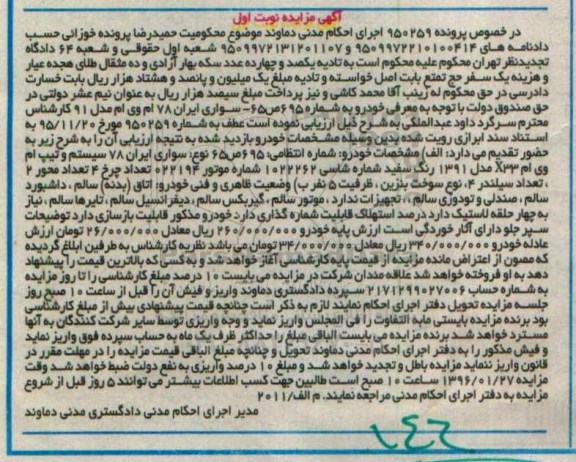 آگهی مزایده نوبت اول
در خصوص پرونده ۹۵۰۲۵۹ اجرای احکام مدنی دماوند موضوع محکومیت حمیدرضا پرونده خوزانی حسب
دادنامه های ۹۵۰۹۹۷۲۲۱۰۱۰۰۴۱۴ و ۹۵۰۹۹۷۲۱۳۱۲۰۱۱۰۷ شعبه اول حقوقی و شعبه ۶۴ دادگاه
تجدیدنظر تهران محکوم علیه محکوم است به تادیه یکصد و چهارده عدد سکه بهار آزادی و ده مثقال طلای هجده عیار
و هزینه یک سفر حج تمتع بابت اصل خواسته و تادیه مبلغ یک میلیون و پانصد و هشتاد هزار ریال بابت خسارت
دادرسی در حق محکوم له زینب آقا محمد کاشی و نیز پرداخت مبلغ سیصد هزار ریال به عنوان نیم عشر دولتی در
حق صندوق دولت با توجه به معرفی خودرو به شماره ۶۹۵ص۶۵- سواری ایران ۷۸ ام وی ام مدل ۹۱ کارشناس
محترم سرگرد داود عبدالملکی به شرح ذیل ارزیابی نموده است عطف به شماره ۹۵۰۲۵۹ مورخ ۹۵/۱۱/۲۰ به
استناد سند ابرازی رویت شده بدین وسیله مشخصات خودرو بازدید شده به نتیجه ارزیابی آن را به شرح زیر به
حضور تقدیم می دارد: الف) مشخصات خودرو: شماره انتظامی: ۶۹۵ص۶۵ نوع: سواری ایران ۷۸ سیستم و تیپ ام
وی ام X۳۳ مدل ۱۳۹۱ رنگ سفید شماره شاسی ۱۰۲۲۲۶۲ شماره موتور ۰۲۲۱۹۴ تعداد چرخ ۴ تعداد محور ۲
، تعداد سیلندر ۴، نوع سوخت بنزین ، ظرفیت ۵ نفر ب) وضعیت ظاهری و فنی خودرو: اتاق (بدنه) سالم ، داشبورد
سالم ، صندلی و تودوزی سالم ،، تجهیزات ندارد ، موتور سالم ، گیربکس سالم ، دیفرانسیل سالم ، تایرها سالم ، نیاز
به چهار حلقه لاستیک دارد درصد استهلاک قابلیت شماره گذاری دارد خودرو مذکور قابلیت بازسازی دارد توضیحات
سپر جلو دارای آثار خوردگی است ارزش پایه خودرو ۲۶۰/۰۰۰/۰۰۰ ریال معادل ۲۶/۰۰۰/۰۰۰ تومان ارزش
عادله خودرو ۳۴۰/۰۰۰/۰۰۰ ریال معادل ۳۴/۰۰۰/۰۰۰ تومان می باشد نظریه کارشناس به طرفین ابلاغ گردیده
که مصون از اعتراض مانده مزایده از قیمت پایه کارشناسی آغاز خواهد شد و به کسی که بالاترین قیمت را پیشنهاد
دهد به او فروخته خواهد شد علاقه مندان شرکت در مزایده می بایست ۱۰ درصد مبلغ کارشناسی را تا روز مزایده
به شماره حساب ۲۱۷۱۲۹۹۰۲۷۰۰۶ سپرده دادگستری دماوند واریز و فیش آن را قبل از ساعت ۱۰ صبح روز
جلسه مزایده تحویل دفتر اجرای احکام نمایند لازم به ذکر است چنانچه قیمت پیشنهادی بیش از مبلغ کارشناسی
بود برنده مزایده بایستی مابه التفاوت را فی المجلس واریز نماید و وجه واریزی توسط سایر شرکت کنندگان به آنها
مسترد خواهد شد برنده مزایده می بایست الباقی مبلغ را حداکثر ظرف یک ماه به حساب سپرده فوق واریز نماید
و فیش مذکور را به دفتر اجرای احکام مدنی دماوند تحویل و چنانچه مبلغ الباقی قیمت مزایده را در مهلت مقرر در
قانون واریز ننماید مزایده باطل و تجدید خواهد شد و مبلغ ۱۰ درصد واریزی به نفع دولت ضبط خواهد شد وقت
مزایده ۱۳۹۶/۰۱/۲۷ ساعت ۱۰ صبح است طالبین جهت کسب اطلاعات بیشتر می توانند ۵ روز قبل از شروع
مزایده به دفتر اجرای احکام مدنی مراجعه نمایند. م الف/۲۰۱۱
مدیر اجرای احکام مدنی دادگستری مدنی دماوند